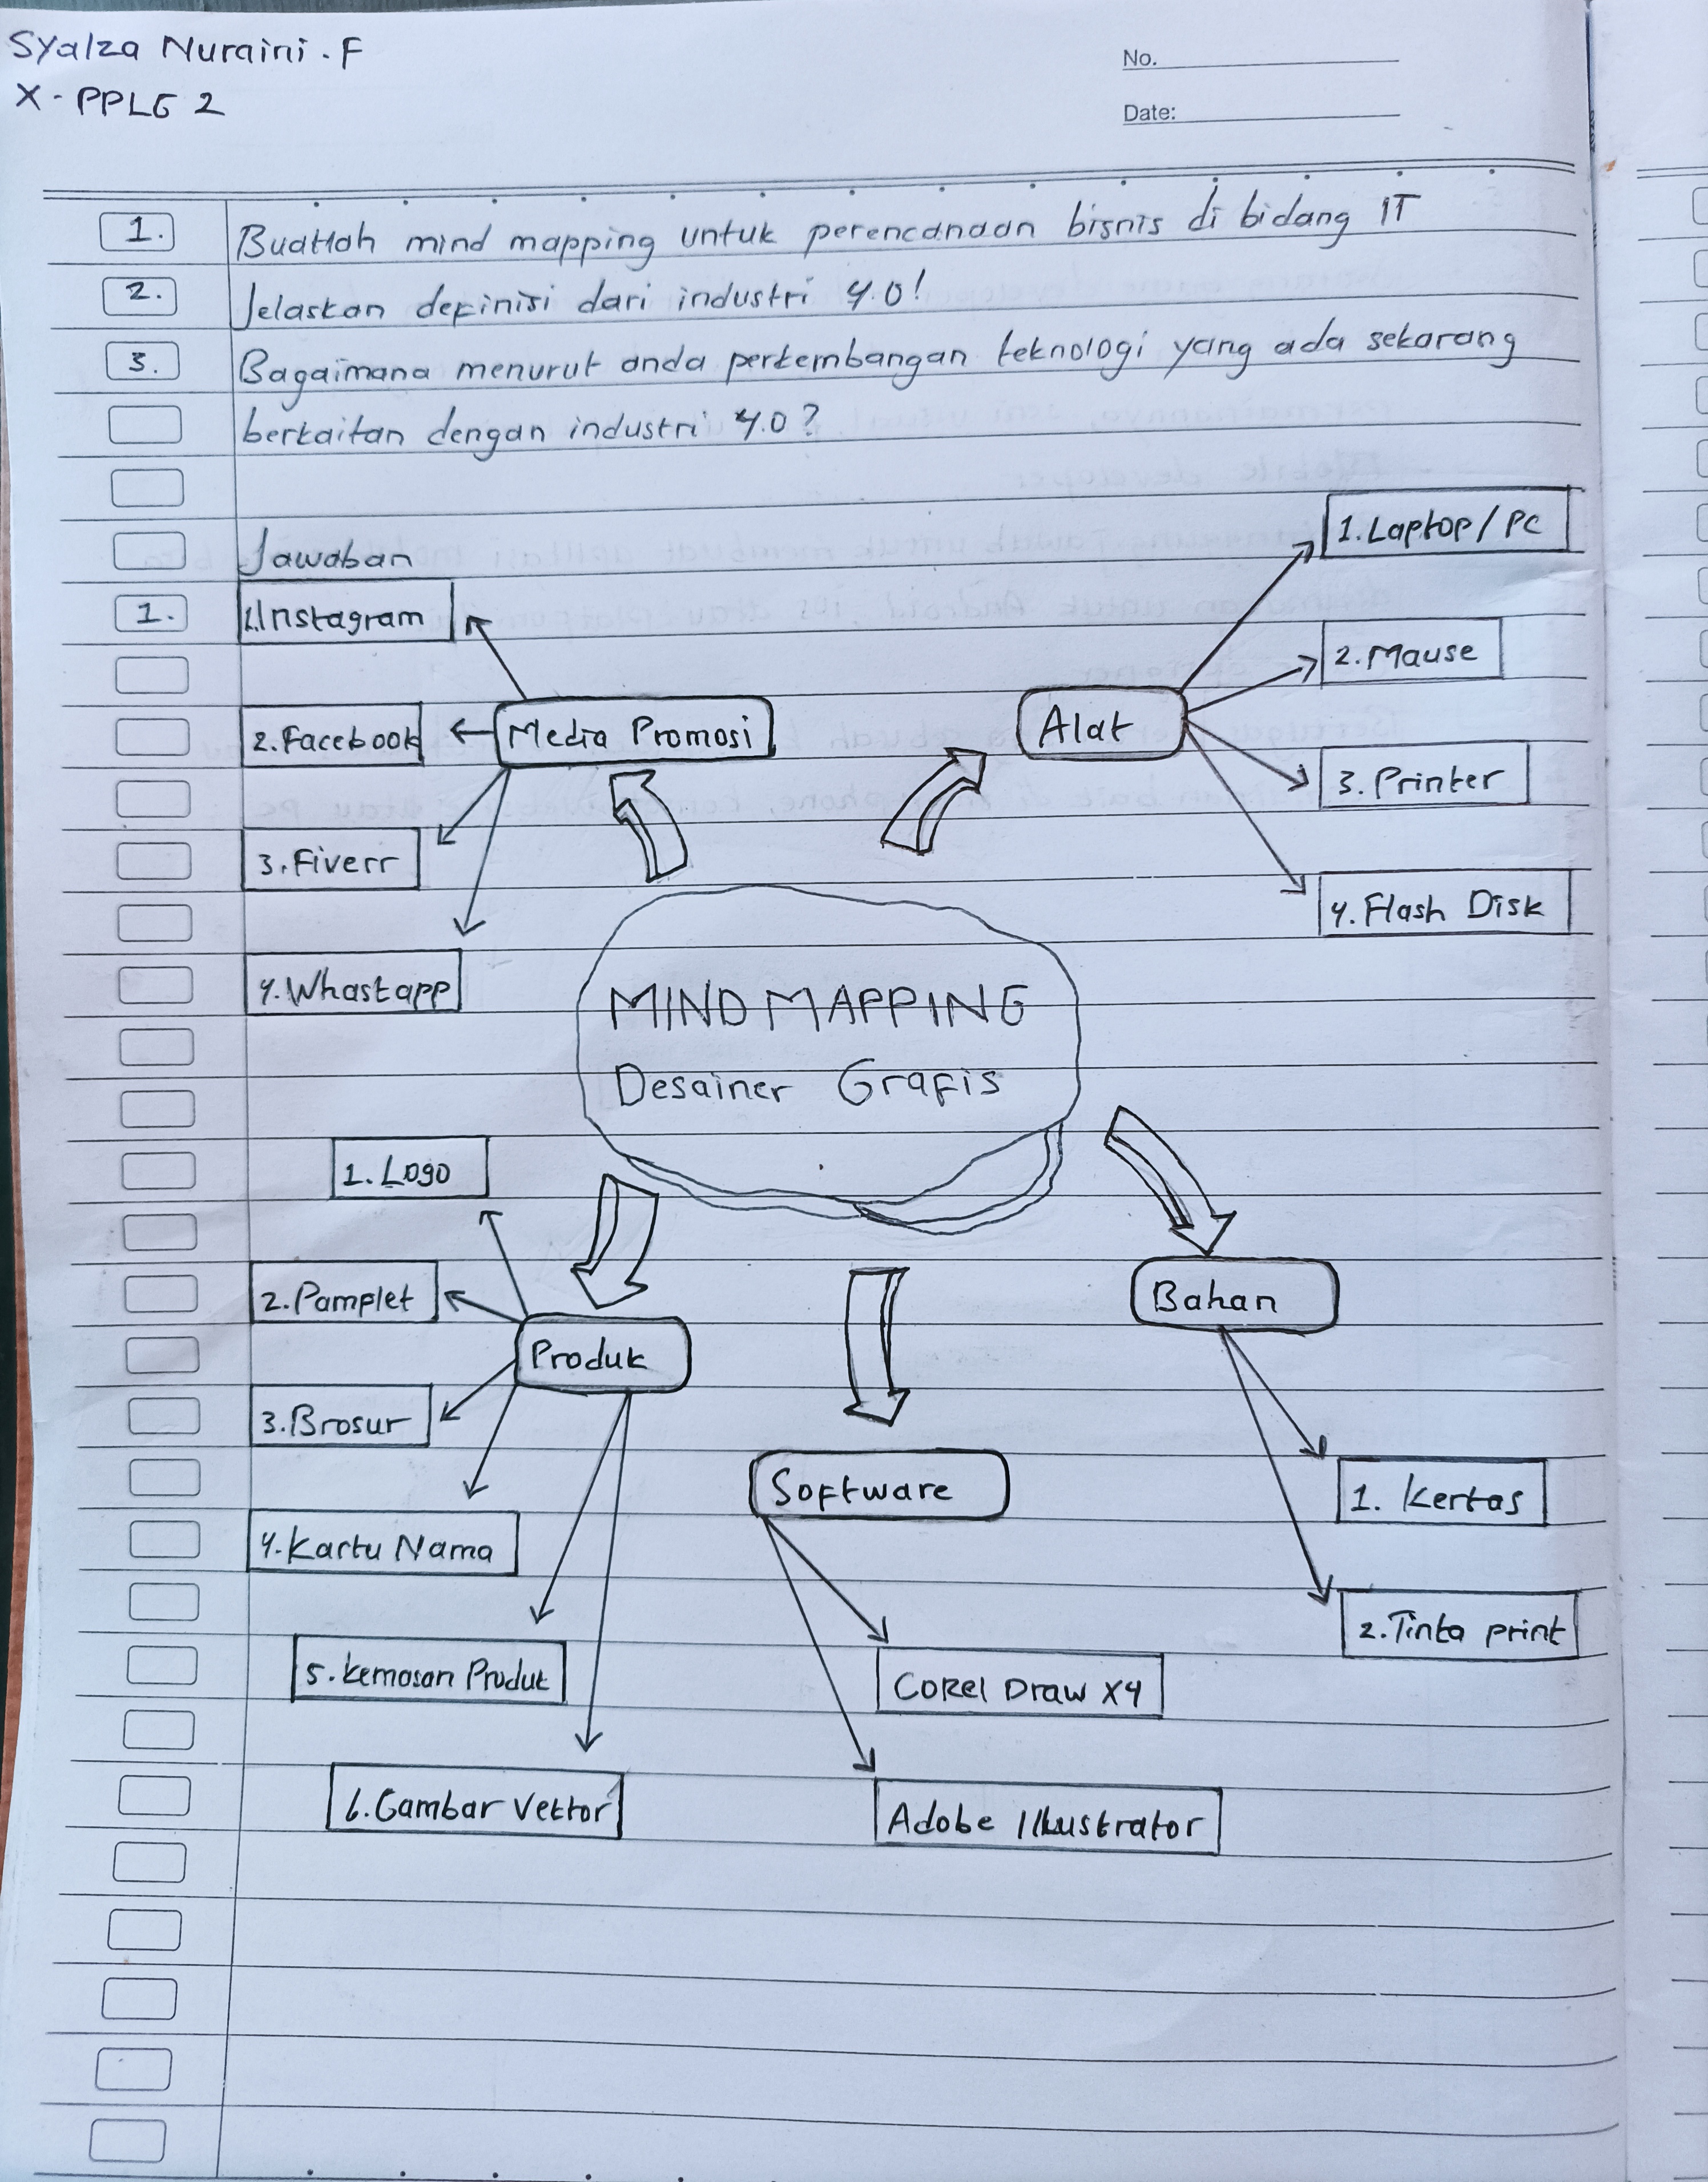 Syalza Nuraini.F
X - PPLG 2
No.
Date:
1. Buatlah mind mapping untuk perencanaan bisnis di bidang IT
2. Jelaskan definisi dari industri 4.0!
3. Bagaimana menurut anda perkembangan teknologi yang ada sekarang
berkaitan dengan industri 4.0?
Jawaban
1.
1.Instagram
2.Facebook
3.Fiverr
4.Whastapp
Media Promosi
Alat
1.Laptop/PC
2.Mause
3.Printer
4.Flash Disk
MIND MAPPING
Desainer Grafis
1. Logo
2.Pamplet
3.Brosur
4.Kartu Nama
5.Kemasan Produk
6.Gambar Vektor
Produk
Software
Corel Draw X4
Adobe Illustrator
Bahan
1. Kertas
2.Tinta print